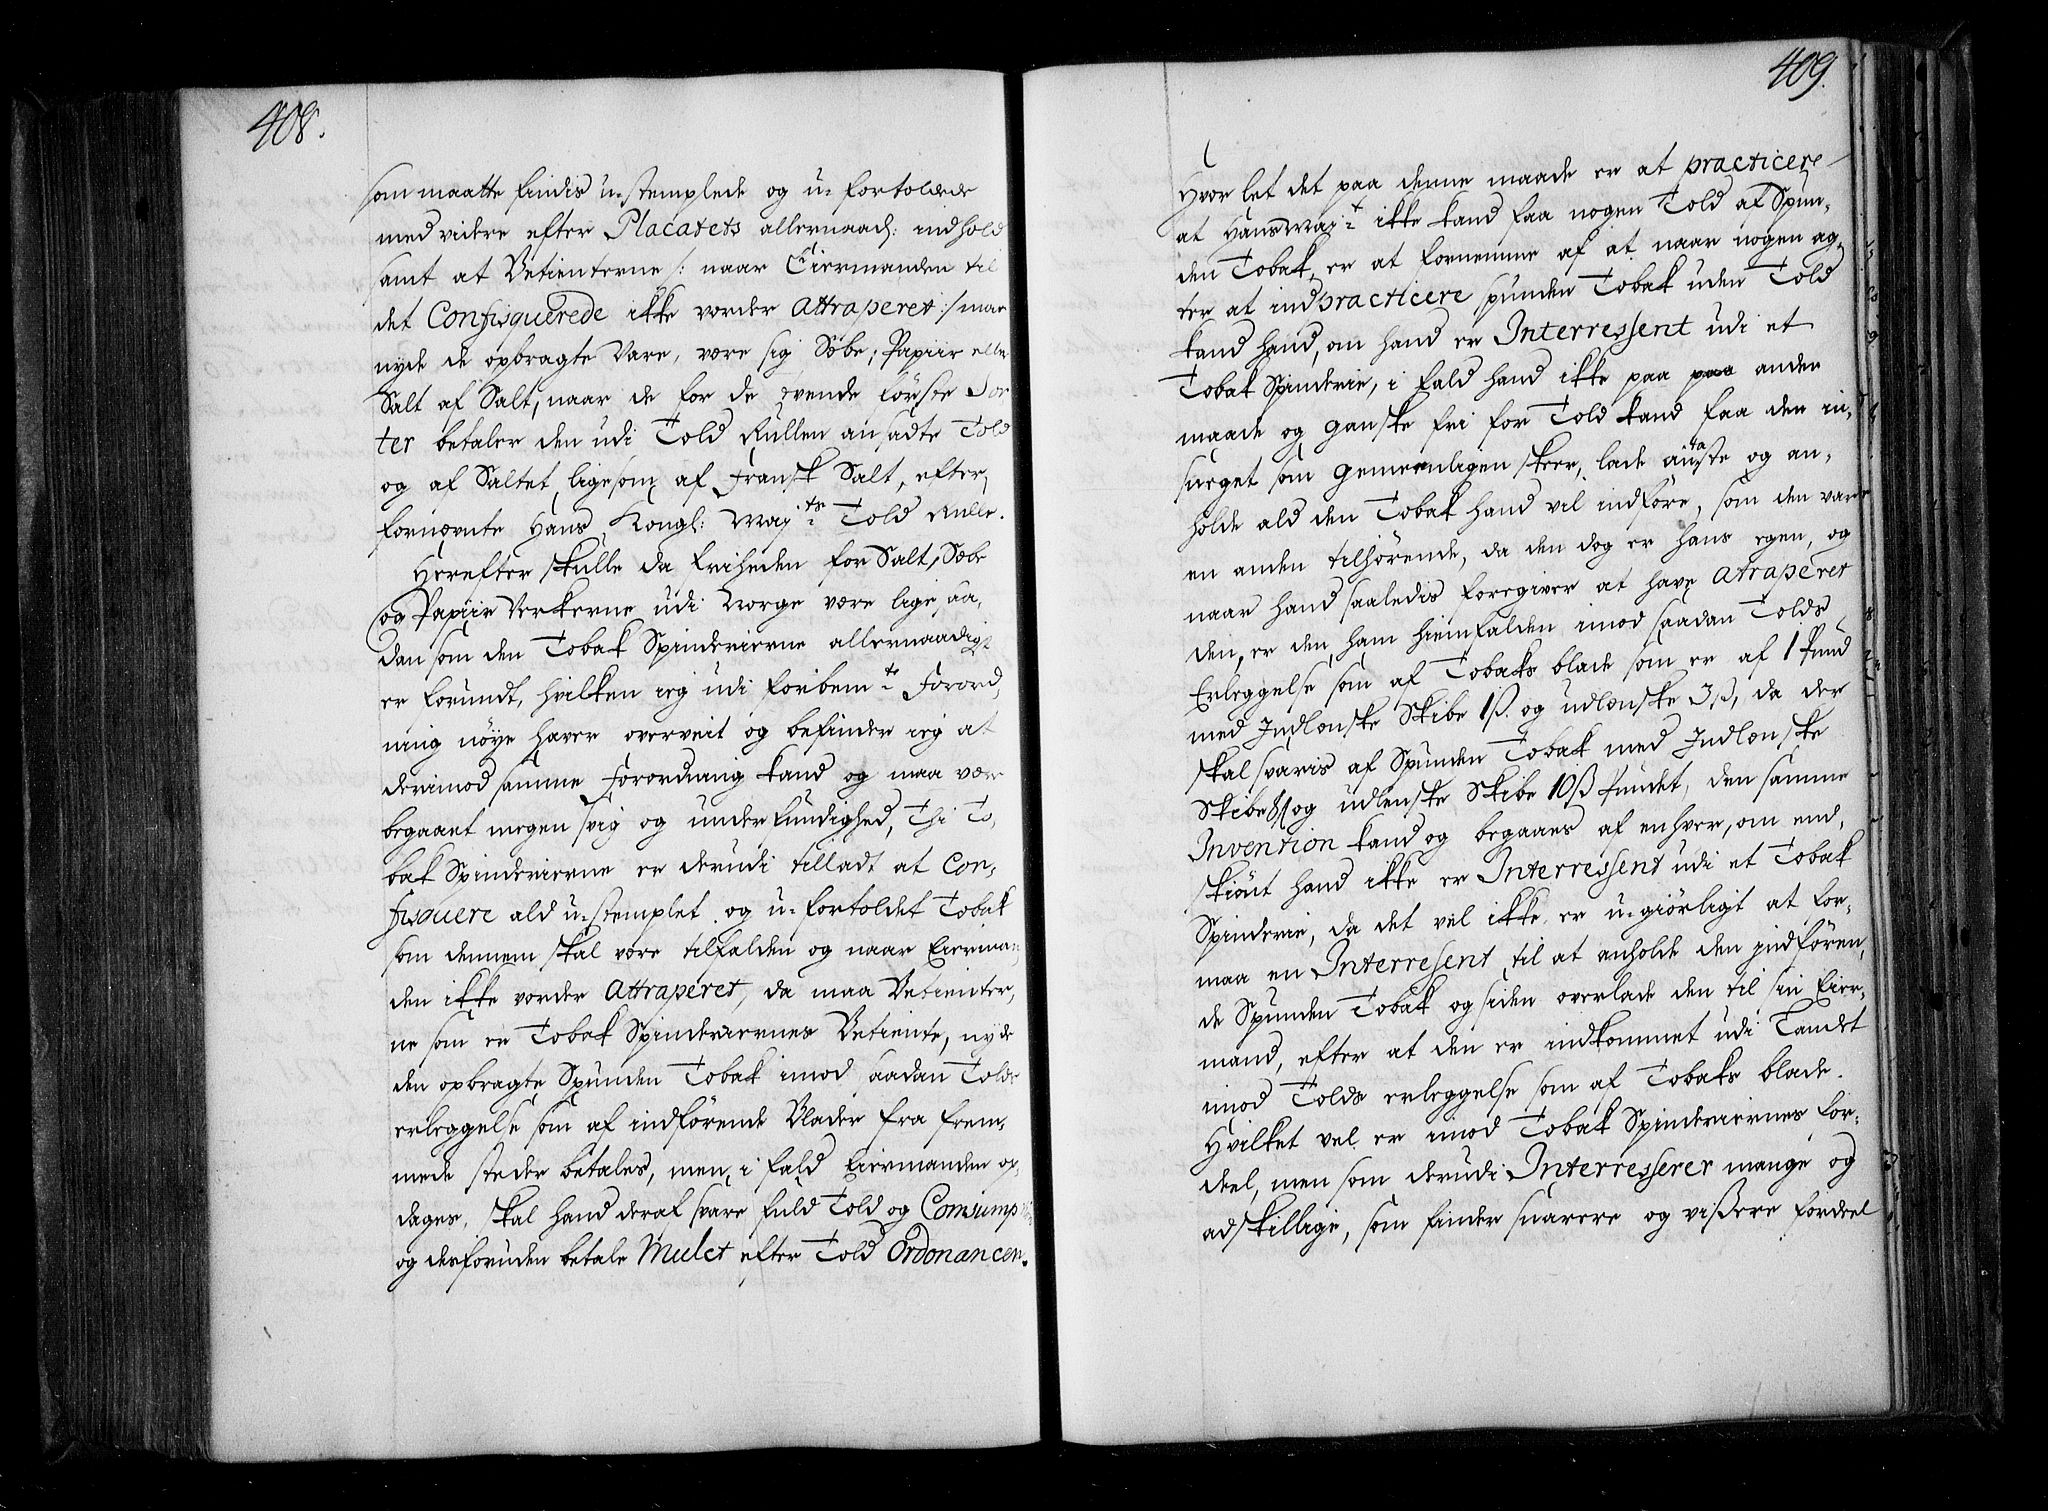 408.
som maatte findis u-stemplede og u-fortolede
med videre efter Placatets allernaad: indhold
samt at Betienterne /: naar Eiermanden til
det Confisquerede ikke vorder Attraperet :/ maa
nyde de opbragte Vare, være sig Sæbe, Papiir eller
Salt af Salt, naar de for de tvende første Sor
ter betaler den udi Told Rullen ansadte Told
og af Saltet, ligesom af Fransk Salt, efter
fornævnte Hans Kongl: Maj:ts Told Rulle.
Herefter skulle da friheden for Salt, Sæbe
og Papiir Verkerne udi Norge være lige saa,
dan som den Tobak Spinderierne allernaadigst
er forundt, hvilken ieg udi foribem:te Forord,
ning nøye haver overveit og befinder ieg at
derimod samme Forordning kand og maa være
begaaet megen svig og underfundighed, Thi To,
bak Spinderierne er derudi tilladt at Con,
fisquere ald u-stemplet og u-fortoldet Tobak
som dennem skal være tilfalden og naar Eierman
den ikke vorder Attraperet, da maa Betienter,
ne som er Tobak Spinderiernes Betiente, nyde
den opbragte Spunden Tobak imod saadan Tolds
erleggelse som af indførende Blader fra frem,
mede steder betales, men i fald Eiermanden op,
dages, skal hand deraf svare fuld Told og Consump
og desforuden betale Mulct efter Told Ordonancen.
409.
Hvor let det paa denne maade er at practicere
at Hans Maj:t ikke kand faa nogen Told af Spun,
den Tobak, er at fornemme af at naar nogen ag,
ter at indpracticere spunden Tobak uden Told
kand hand, om hand er Interressent udi et
Tobak Spinderie, i fald hand ikke paa paa anden
maade og ganske fri for Told kand faa den in,
surget som gemeenligen skeer, lade antaste og an,
holde ald den Tobak hand vil indføre, som den var
en anden tilhørende, da den dog er hans egen, og
naar hand saaledis foregiver at have atraperet
den, er den ham hiemfalden imod saadan Tolds
Erleggelse som af Tobaks blade som er af 1 Pund
med Indlænske Skibe 1ß. og udlænske 3ß, da der
skal svaris af Spunden Tobak med Indlænske
Skibe 8ß og udlenske Skibe 10ß Pundet, den samme
Invention kand og begaaes af enhver, om end,
skiønt hand ikke er Interressent udi et Tobak
Spinderie, da det vel ikke er u-giørligt at for,
maa en Interresent til at anholde den indføren,
de Spunden Tobak og siden overlade den til sin Eier,
mand, efter at den er indkommet udi Landet
imod Tolds erleggelse som af Tobaks blade.
Hvilket vel er imod Tobak Spinderiernes for,
deel, men som derudi Interresserer mange og
adskillige, som finder snarere og vißere fordeel